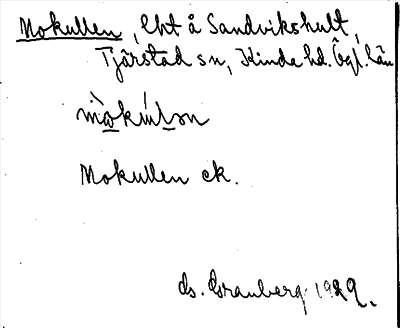 Mokullen, lht å Sandvikshult,
Tjärstad sn, Kinda hd. Ögl. län
Mokullen ek.
Cs. Granberg 1929.